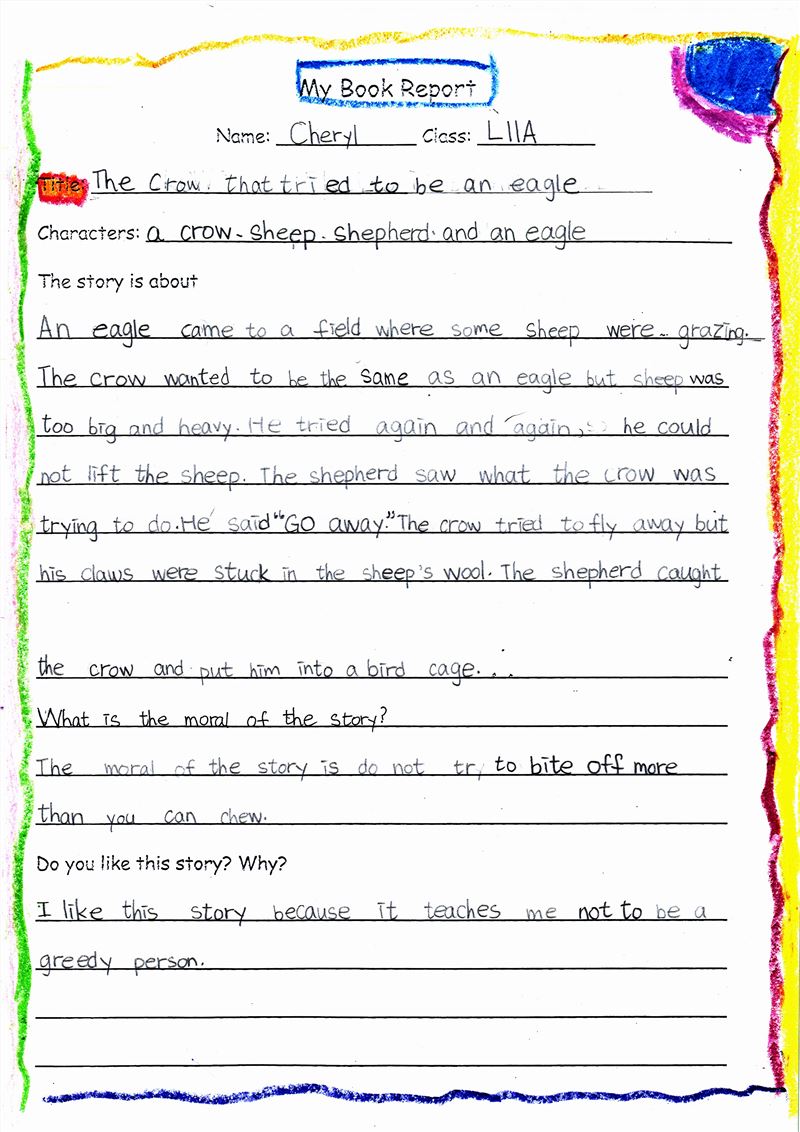 My Book Report
Name: Cheryl Class: L11A
Title: The Crow that tried to be an eagle
Characters: a crow. Sheep. shepherd. and an eagle
The story is about
An eagle came to a field where some sheep were grazing.
The crow wanted to be the same as an eagle but sheep was
too big and heavy. He tried again and again, so he could
not lift the sheep. The shepherd saw what the crow was
trying to do. He said "GO away." The crow tried to fly away but
his claws were stuck in the sheep's wool. The shepherd caught
the crow and put him into a bird cage...
What is the moral of the story?
The moral of the story is do not try to bite off more
than you can chew.
Do you like this story? Why?
I like this story because it teaches me not to be a
greedy person.